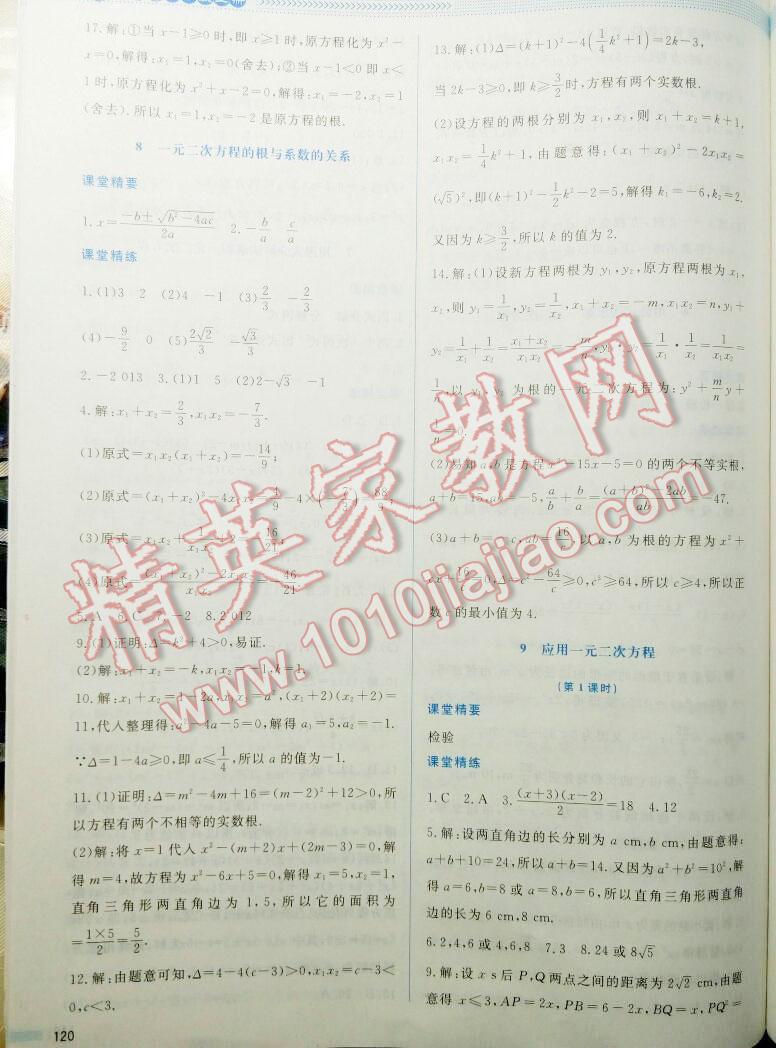 17.解:①当 x-1≥0 时,即 x≥1 时,原方程化为 x²-
x=0,解得:x₁=1,x₂=0(舍去);②当 x-1<0 即 x<
1时,原方程化为 x²+x-2=0,解得:x₁=-2,x₂=1
(舍去).所以 x₁=1,x₂=-2 是原方程的根.
8 一元二次方程的根与系数的关系
课堂精要
1.x=(-b±√(b²-4ac))/2a 2.-b/a c/a
课堂精练
1.(1)3 2 (2)4 -1 (3)2/3 -2/3
(4)-9/2 0 (5)2√2/3 -√3/3
2.-2 013 3.(1)1 5 (2)2-√3 -1
4.解:x₁+x₂=2/3,x₁x₂=-7/3.
(1)原式=x₁x₂(x₁+x₂)=-14/9;
(2)原式=(x₁+x₂)²-4x₁x₂=4/9-4×(-7/3)=88/9;
(3)原式=x₁x₂+1/x₁x₂+2=-16/21;
(4)原式=((x₁+x₂)²-2x₁x₂)/x₁x₂=-46/21
5.A 6.C 7.-2 8.2 012
9.(1)证明:Δ=k²+4>0,易证.
(2)解:x₁+x₂=-k,x₁x₂=-1,k=1.
10.解:x₁+x₂=1-2a,x₁x₂=a²,(x₁+2)(x₂+2)=
11,代入整理得:a²-4a-5=0,解得 a₁=5,a₂=-1.
∵Δ=1-4a≥0,即 a≤1/4,所以 a 的值为-1.
11.(1)证明:Δ=m²-4m+16=(m-2)²+12>0,所
以方程有两个不相等的实数根.
(2)解:将 x=1 代入 x²-(m+2)x+(2m-3)=0,解
得 m=4,故方程为 x²-6x+5=0,解得 x₁=5,x₂=1,
直角三角形两直角边为 1,5,所以它的面积为
=(1×5)/2=5/2.
12.解:由题意可知,Δ=4-4(c-3)>0,x₁x₂=c-3<
0,c<3.
120
13.解:(1)Δ=(k+1)²-4(1/4k²+1)=2k-3,
当 2k-3≥0,即 k≥3/2时,方程有两个实数根.
(2)设方程的两根分别为 x₁,x₂,则 x₁+x₂=k+1,
x₁x₂=1/4k²+1,由题意得:(x₁+x₂)²-2x₁x₂=
(√5)²,即(k+1)²-1/2k²-2=5,解得 k₁=-6,k₂=2.
又因为 k≥3/2,所以 k 的值为 2.
14.解:(1)设新方程两根为 y₁,y₂,原方程两根为 x₁,
x₂,则 y₁=1/x₁,y₂=1/x₂,x₁+x₂=-m,x₁x₂=n,y₁+
y₂=1/x₁+1/x₂=(x₁+x₂)/x₁x₂=-m/n,y₁·y₂=1/x₁·1/x₂=1/x₁x₂=
1/n,以 y₁,y₂ 为根的一元二次方程为:y²+m/n y+
1/n=0.
(2)易知 a,b 是方程 x²-15x-5=0 的两个不等实根,
a+b=15,ab=-5,a/b+b/a=((a+b)²-2ab)/ab=-47.
(3)a+b=-c,ab=16/c,以 a,b 为根的方程为 x²+
cx+16/c=0,Δ=c²-64/c≥0,c³≥64,所以 c≥4,所以正
数 c 的最小值为 4.
9 应用一元二次方程
(第 1 课时)
课堂精要
检验
课堂精练
1.C 2.A 3.(x+3)(x-2)/2=18 4.12
5.解:设两直角边的长分别为 a cm,b cm,由题意得:
a+b+10=24,所以 a+b=14.又因为 a²+b²=10²,解
得 a=6,b=8 或 a=8,b=6,所以直角三角形两直角
边的长为 6 cm,8 cm.
6.2,4,6 或 4,6,8 7.3 8.24 或 8√5
9.解:设 x s 后 P,Q 两点之间的距离为 2√2 cm,由题
意得 x≤3,AP=2x,PB=6-2x,BQ=x,PQ²=
精英家教网
www.1010jiajiao.com